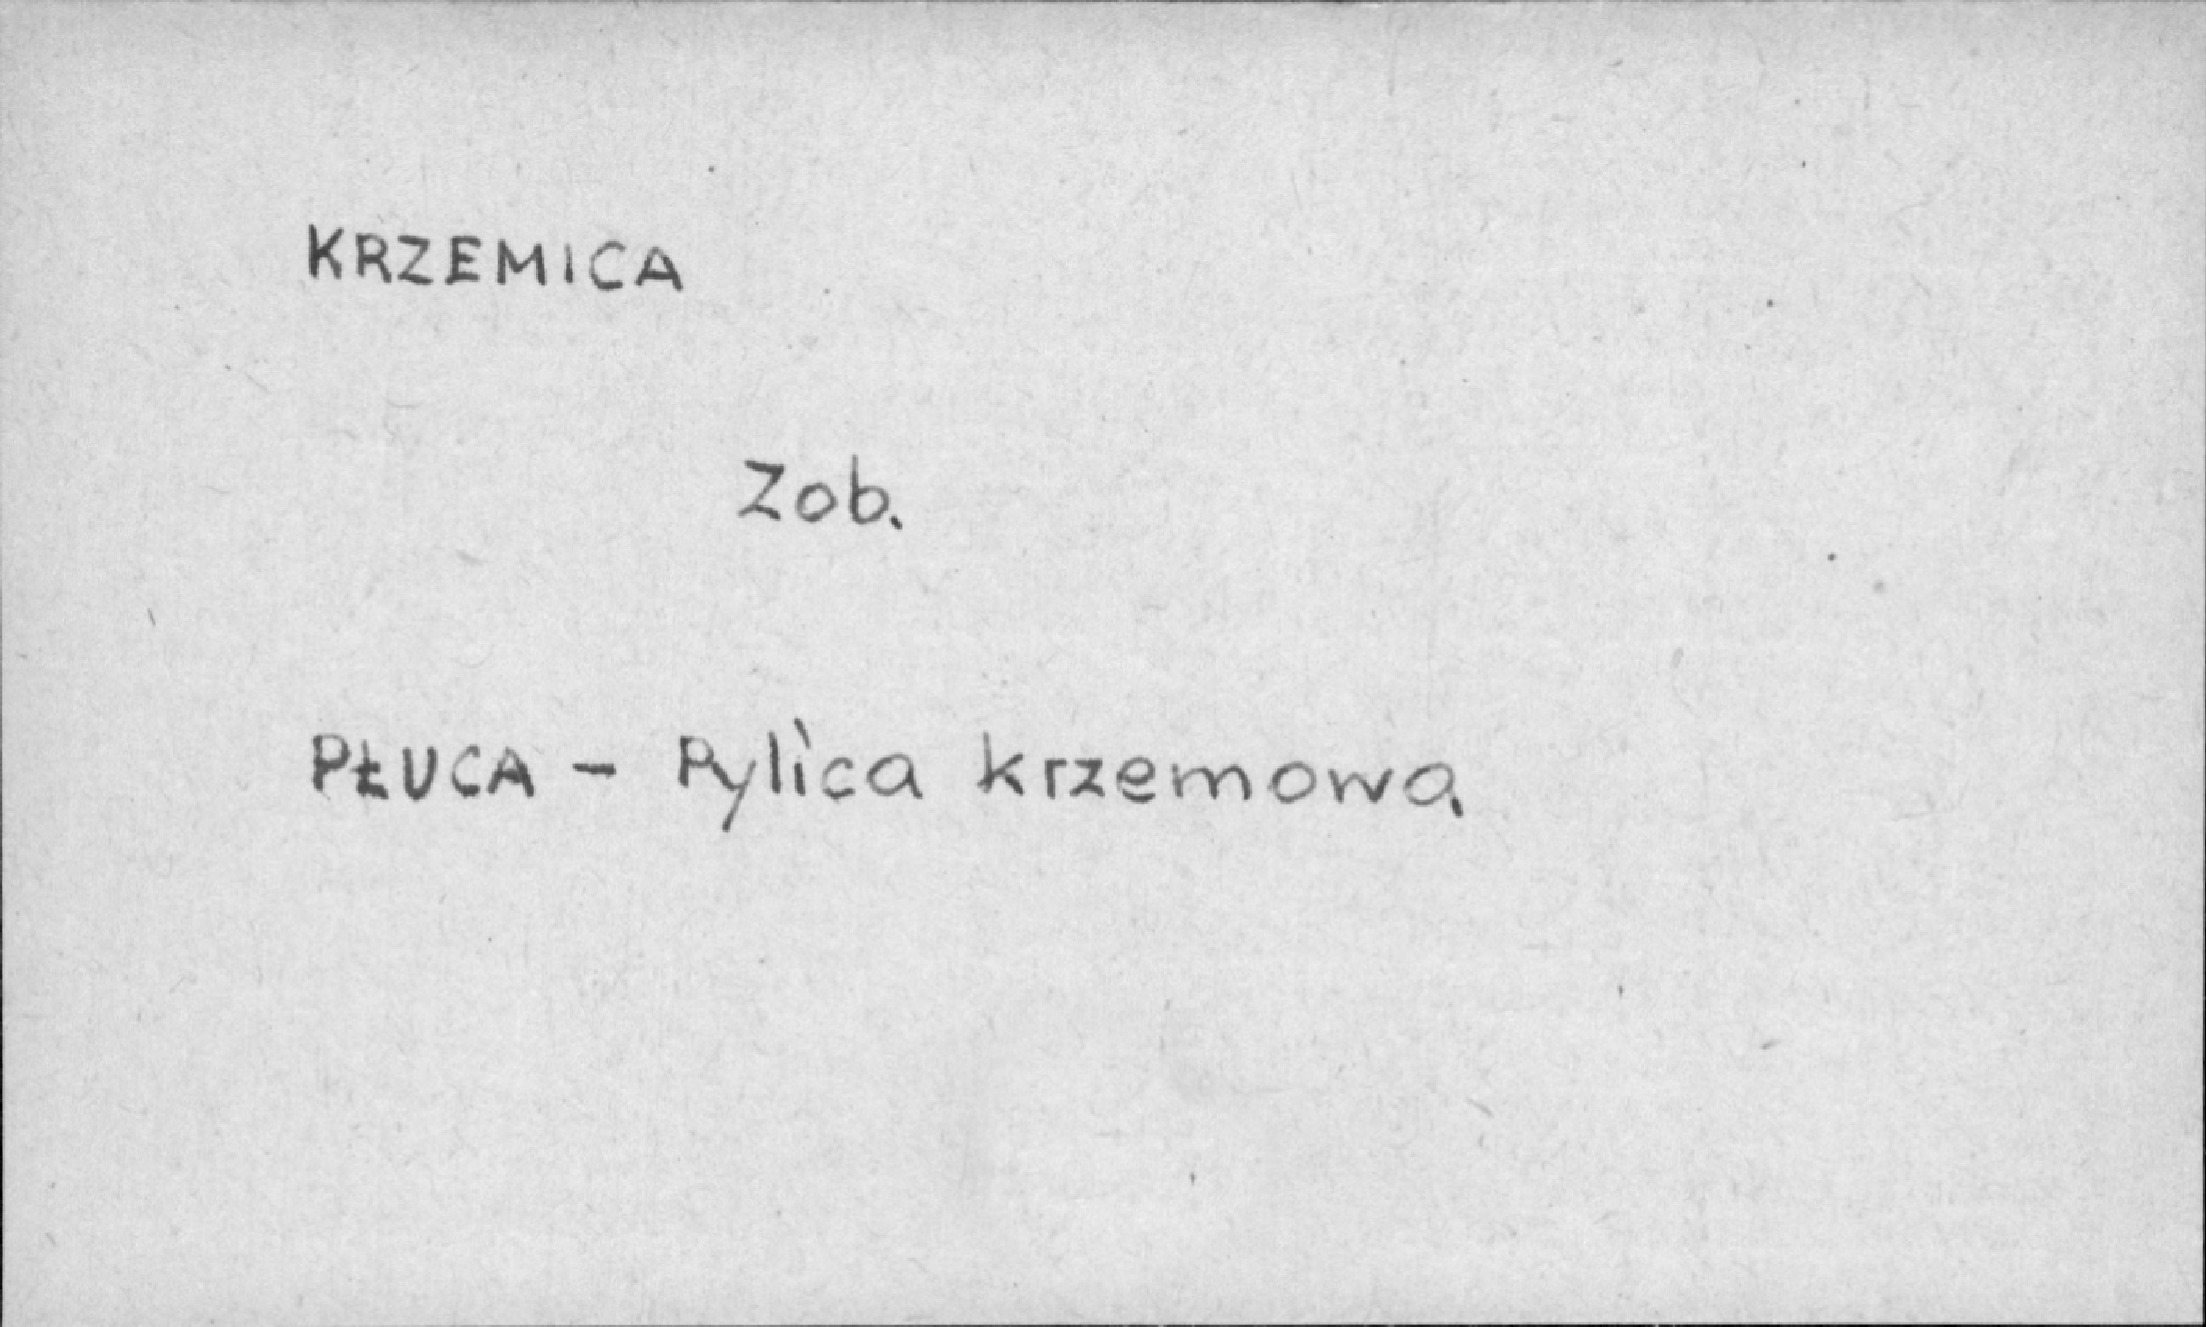 KRZEMICA
Zob.
PŁUCA - Pylica krzemowa